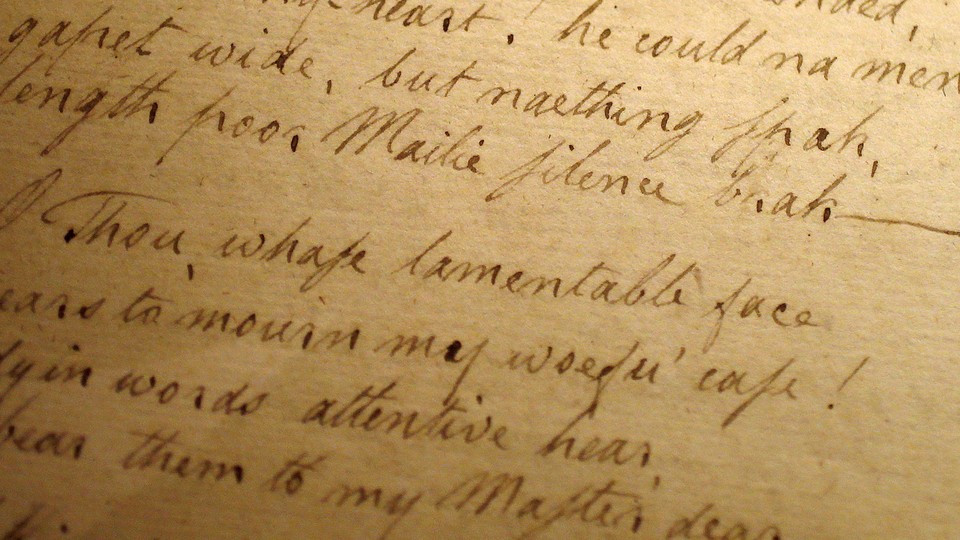 nded,
my-heart! he could na men
gapet wide, but naething ſpak,
length poor Mailie ſilence brak—
O Thou, whaſe lamentable face
ears to mourn my woefu' caſe!
dyin words attentive hear,
bear them to my Maſter dear